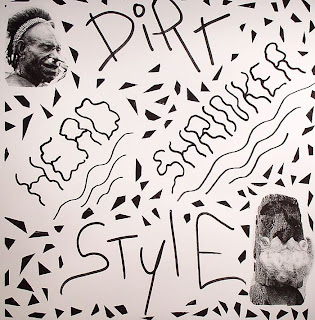 DiRt
HEAD SHRiNKER
STyLE